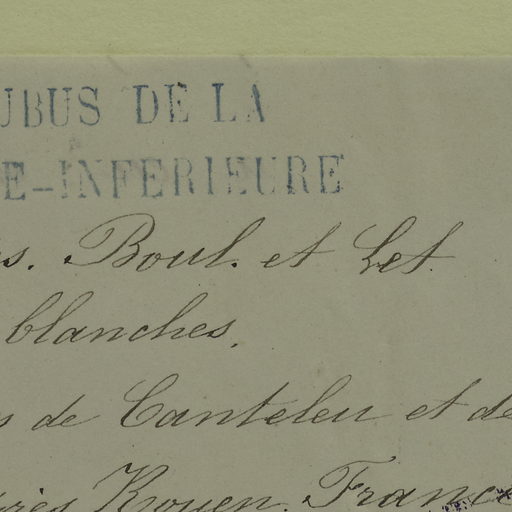 UBUS DE LA
E-INFERIEURE
s. Boul. et Let.
blanches.
s de Canteleu et de
près Rouen. France